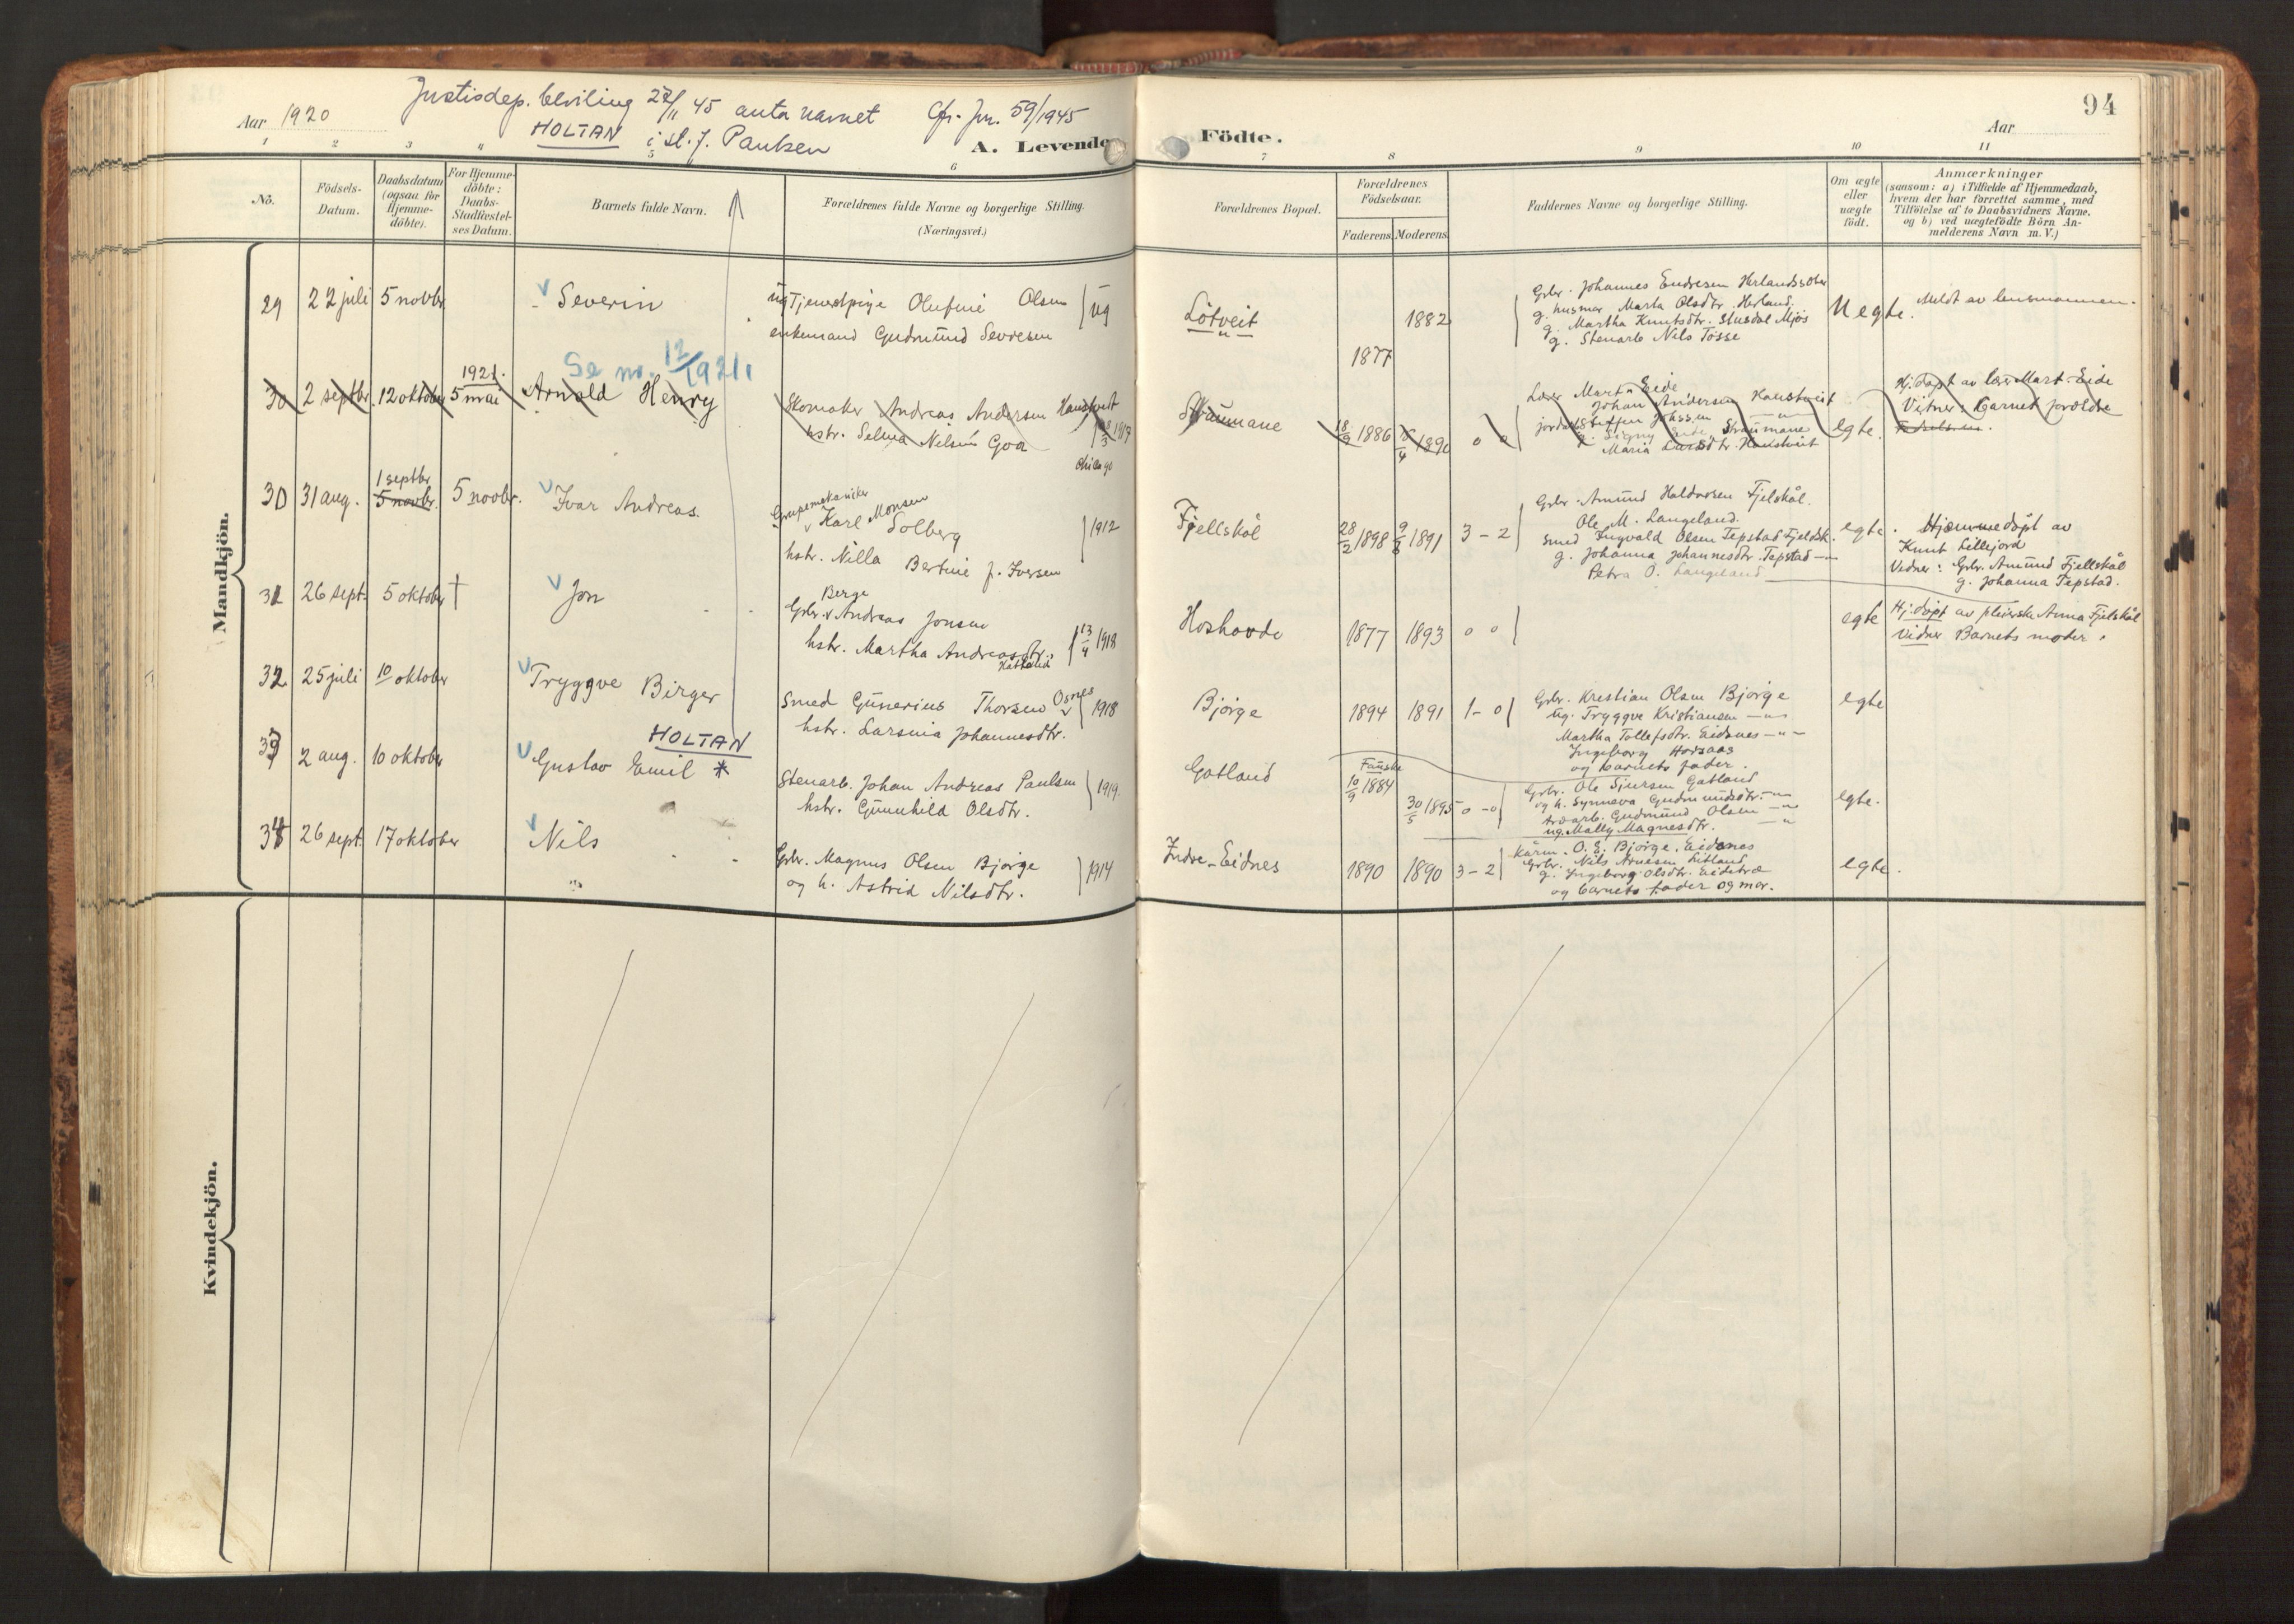 94
Justisdep. bevilling 27/11 45 anta navnet Cfr. Jnr. 59/1945
HOLTAN i st. f. Paulsen
Aar 1920
A. Levende Födte.
Aar
1 2 3 4 5 6 7 8 9 10 11
No.
Födsels-
Datum.
Daabsdatum
(ogsaa for
Hjemme-
döbte).
For Hjemme-
döbte:
Daabs-
Stadfæstel-
ses Datum.
Barnets fulde Navn.
Forældrenes fulde Navne og borgerlige Stilling.
(Næringsvei.)
Forældrenes Bopæl.
Forældrenes
Födselsaar.
Faderens. Moderens.
Faddernes Navne og borgerlige Stilling.
Om ægte
eller
uægte
födt.
Anmærkninger
(saasom: a) i Tilfælde af Hjemmedaab,
hvem der har forrettet samme, med
Tilföielse af to Daabsvidners Navne,
og b) ved uægtefödte Börn An-
melderens Navn m. V.)
Mandkjön.
29 22 juli 5 novbr. Severin
ug Tjenestpige Olufine Olsen ug
enkemand Gudmund Sevresen
Lötveit
1882
1877
Grbr. Johannes Endresen Herlandsober
g. husmor Marta Olsdtr. Herland.
g. Martha Knutsdtr. Stusdal Mjös
g. Stenarb Nils Tösse
Uegte.
Meldt av lensmannen.
Se nr. 12/1921
30 2 septbr. 12 oktober 1921. 5 mai Arnold Henry
Skomaker Andreas Andersen Haustveit
hstr. Selma Nilsen Goa
1917
Chicago
Straumane
18/9 1886 1890 0 0
Lærer Martin Eide
Johan Andersen Haustveit
Straumane
Maria Larsdtr. Haustveit
egte.
Hj. döpt av lærer Mart. Eide
Vitner: Barnets forældre
30 31 aug. 1 septbr 5 novbr. 5 novbr. Ivar Andreas.
Grupemekaniker
Karl Monsen Solberg
hstr. Nilla Bertine f. Iversen
1912
Fjellskål
28/2 1898 9/8 1891 3 - 2
Grbr. Amund Haldorsen Fjelskål.
Ole M. Langeland.
Smed Ingvald Olsen Tepstad Fjeldsk.
g. Johanna Johannesdtr. Tepstad —"—
Petra O. Langeland
egte.
Hjemmedöpt av
Knut Lillejord
Vidner: Grbr. Amund Fjellskål
g. Johanna Tepstad.
31 26 sept. 5 oktober † Jon
Berge
Grbr. Andreas Jonsen
hstr. Martha Andreasdtr.
13/4 1918
Hoshovde
1877 1893 0 0
egte
Hj. döpt av pleierske Anna Fjelskål
Vidner Barnets moder.
32 25 juli 10 oktober Tryggve Birger
Smed Gunerius Thorsen Osnes
hstr. Larsina Johannesdtr.
1918
Bjørge
1894 1891 1 - 0
Grbr. Kristian Olsen Bjørge
ug. Tryggve Kristiansen —"—
Martha Tollefsdtr. Eidsnes —"—
Ingeborg Horsaas
og barnets fader.
egte
33 2 aug. 10 oktober Gustav Emil * HOLTAN
Stenarb. Johan Andreas Paulsen
hstr. Gunnhild Olsdtr.
1919.
Gatland
Fauske
10/9 1884 30/5 1895 0 - 0
Grbr. Ole Sjursen Gatland
og h. Synneva Gudmundsdtr. —"—
Arb. Gudmund Olsen —"—
ug. Mally Magnesdtr. —"—
egte.
34 26 sept. 17 oktober Nils
Grbr. Magnus Olsen Bjørge
og h. Astrid Nilsdtr.
1914
Indre-Eidnes
1890 1890 3 - 2
Kårm. O. E. Bjørge, Eidsnes
Grbr. Nils Arnesen Litland
g. Ingeborg Olsdtr. Eidetræ
og barnets fader og mor.
egte.
Kvindekjön.